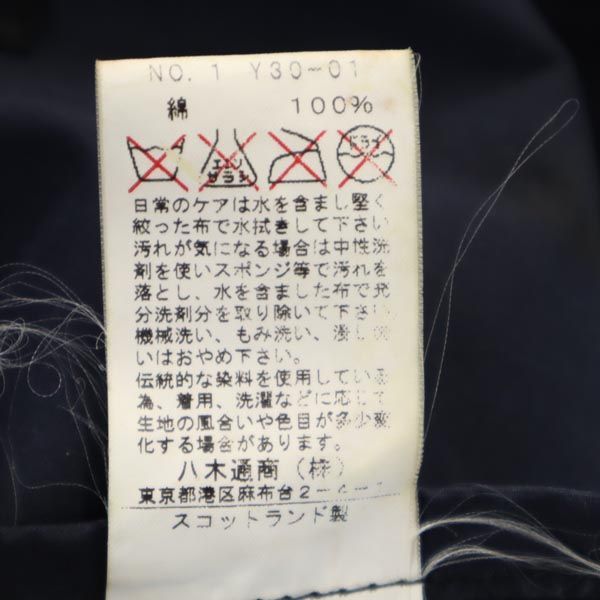 NO. 1 Y30-01
綿 100%
エンソ サラシ ドライ
日常のケアは水を含まし堅く
絞った布で水拭きして下さい
汚れが気になる場合は中性洗
剤を使いスポンジ等で汚れを
落とし、水を含ました布で充
分洗剤分を取り除いて下さい
機械洗い、もみ洗い、浸し洗
いはおやめ下さい。
伝統的な染料を使用している
為、着用、洗濯などに応じて
生地の風合いや色目が多少変
化する場合があります。
八木通商(株)
東京都港区麻布台2-
スコットランド製